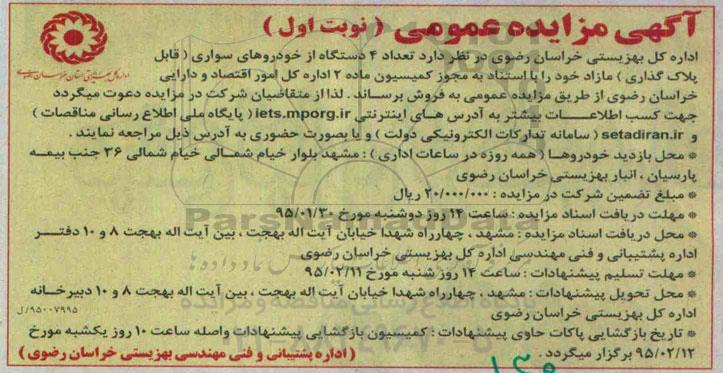 آگهی مزایده عمومی ( نوبت اول )
اداره کل بهزیستی خراسان رضوی در نظر دارد تعداد ۴ دستگاه از خودروهای سواری ( قابل
پلاک گذاری ) مازاد خود را با استناد به مجوز کمیسیون ماده ۲ اداره کل امور اقتصاد و دارایی
خراسان رضوی از طریق مزایده عمومی به فروش برساند . لذا از متقاضیان شرکت در مزایده دعوت میگردد
جهت کسب اطلاعات بیشتر به آدرس های اینترنتی iets.mporg.ir ( پایگاه ملی اطلاع رسانی مناقصات )
و setadiran.ir ( سامانه تدارکات الکترونیکی دولت ) و یا بصورت حضوری به آدرس ذیل مراجعه نمایند .
* محل بازدید خودروها ( همه روزه در ساعات اداری ) : مشهد بلوار خیام شمالی خیام شمالی ۳۶ جنب بیمه
پارسیان ، انبار بهزیستی خراسان رضوی
* مبلغ تضمین شرکت در مزایده : ۲۰/۰۰۰/۰۰۰ ریال
* مهلت دریافت اسناد مزایده : ساعت ۱۴ روز دوشنبه مورخ ۹۵/۰۱/۳۰
* محل دریافت اسناد مزایده : مشهد ، چهارراه شهدا خیابان آیت اله بهجت ، بین آیت اله بهجت ۸ و ۱۰ دفتر
اداره پشتیبانی و فنی مهندسی اداره کل بهزیستی خراسان رضوی
* مهلت تسلیم پیشنهادات : ساعت ۱۴ روز شنبه مورخ ۹۵/۰۲/۱۱
* محل تحویل پیشنهادات : مشهد ، چهارراه شهدا خیابان آیت اله بهجت ، بین آیت اله بهجت ۸ و ۱۰ دبیرخانه
اداره کل بهزیستی خراسان رضوی
۹۵۰۰۷۹۹۵/ل
* تاریخ بازگشایی پاکات حاوی پیشنهادات : کمیسیون بازگشایی پیشنهادات واصله ساعت ۱۰ روز یکشنبه مورخ
۹۵/۰۲/۱۲ برگزار میگردد .
( اداره پشتیبانی و فنی مهندسی بهزیستی خراسان رضوی )